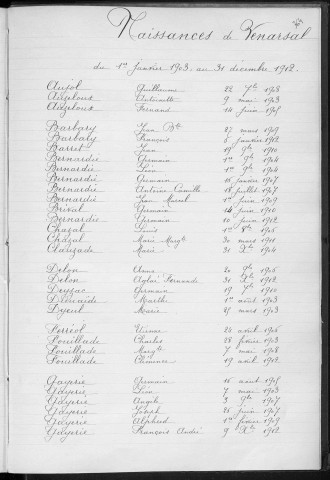 Naissances de Venarsal
du 1er janvier 1903 au 31 décembre 1912.
Aujol Guillaume 22 7bre 1908
Antoinette 9 mai 1903
Fernand 14 juin 1905
Barbary Jean Bte 27 mars 1909
Barbary 5 janvier 1912
Barret Jean 19 9bre 1910
Bernardie Germain 1er 9bre 1904
Bernardie Léon 1er 9bre 1904
Bernardie Germain 16 janvier 1907
Bernardie Antoine Camille 18 juillet 1907
Bernardie Jean Marcel 1er janvier 1909
Bréval Germain 14 juin 1910
Bernardie Germain 10 juin 1912
Chazal Louis 1er 9bre 1905
Chazal Marie Margte 30 mars 1911
Clauzade Marie 31 Xbre 1904
Delon Anna 20 9bre 1905
Delon Aglaé Fernande 31 Xbre 1912
Deyzac Germain 19 1910
Marthe 1er août 1903
Marie 25 mars 1903
Ferréol Etienne 24 avril 1906
Fouillade Charles 28 février 1903
Fouillade Margte 7 mai 1908
Fouillade 19 avril 1912
Gayerie Germain 16 août 1905
Gayerie Léon 7 mai 1903
Gayerie Angèle 3 9bre 1907
Gayerie Joseph 25 juin 1907
Gayerie Alphred 1er février 1909
Gayerie François André 9 Xbre 1912